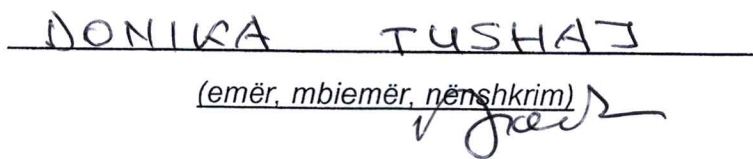 DONIKA TUSHAJ
(emër, mbiemër, nënshkrim)